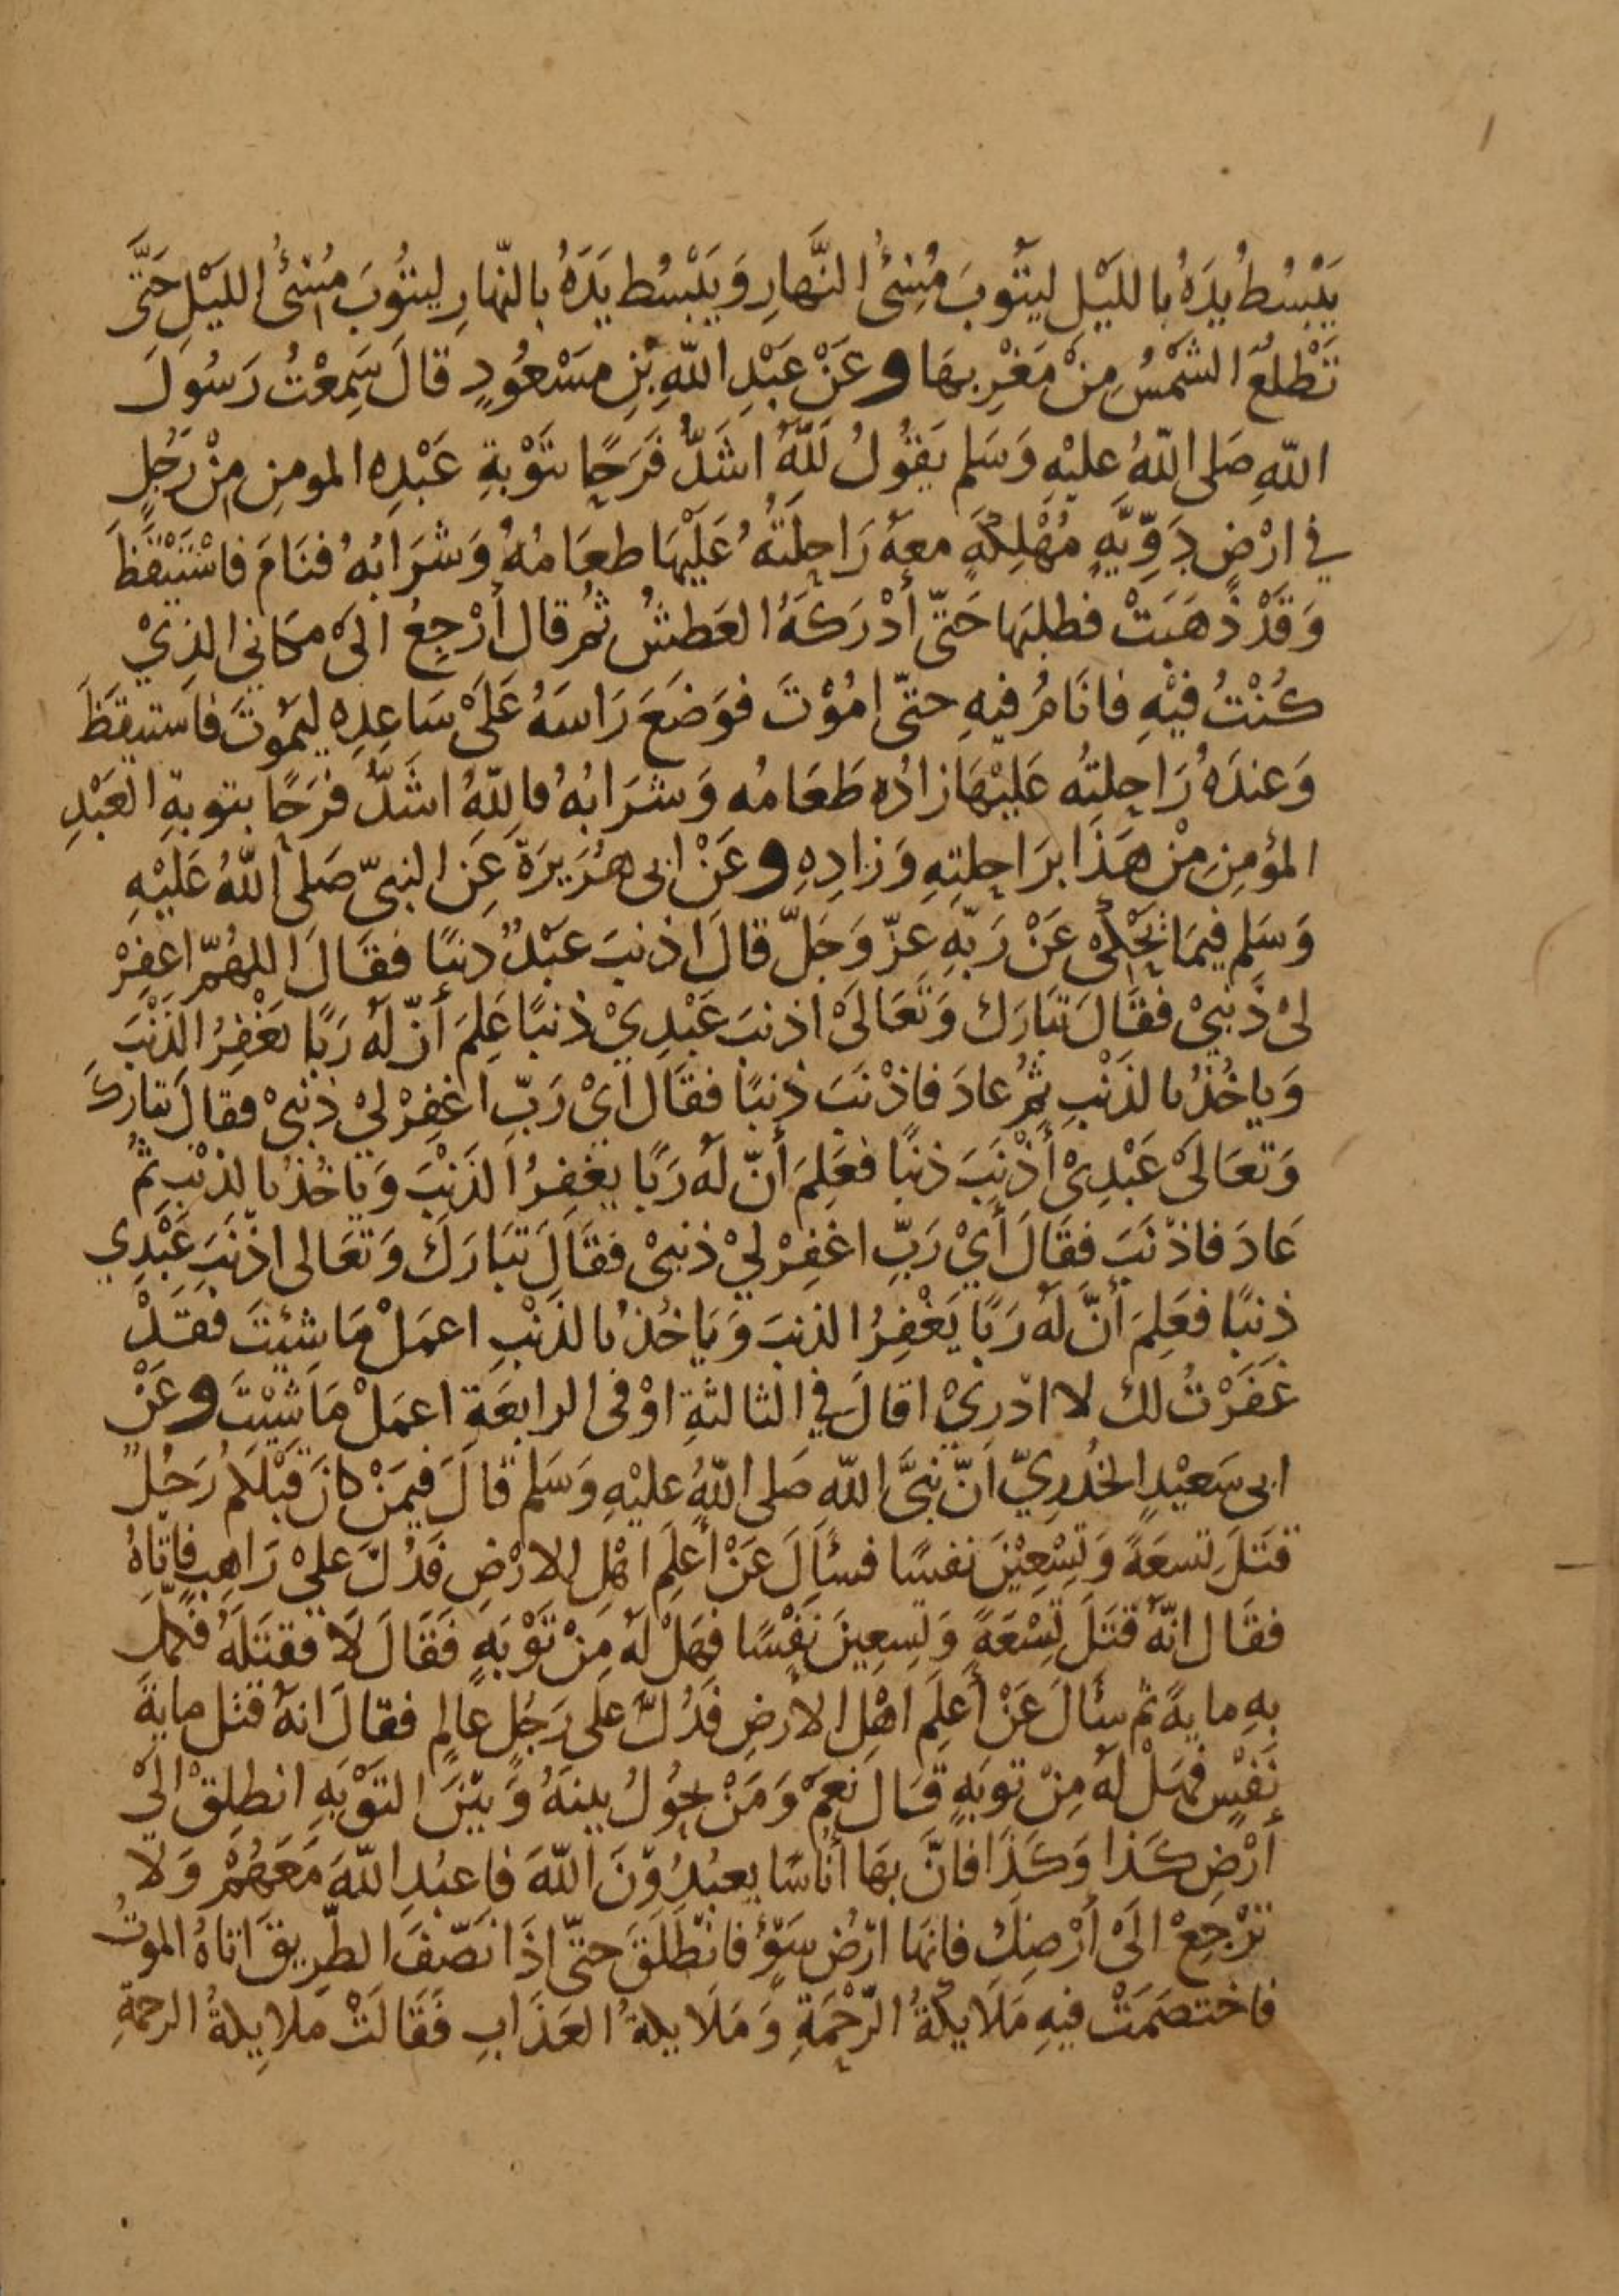 يَبْسُطُ يَدَهُ بالليْلِ ليَتُوبَ مُسِئُ النَّهارِ وَيَبْسُط يَدَهُ بالنّهارِ ليتُوبَ مُسِئُ الليْلِ حَتَّى
تَطْلعَ الشمْسُ مِنْ مَغْرِبهَا وعَنْ عَبْدِ اللّهِ بْنِ مسْعُودٍ قالَ سَمِعْتُ رَسُولَ
اللّهِ صَلى اللّهُ عليْهِ وَسَلم يَقُولُ لَلّهُ اشَدُّ فَرَحًا بتَوْبةِ عَبْدِهِ المومنِ مِنْ رَجُلٍ
في ارْضٍ دَوِّيّةٍ مُهْلِكَةٍ معهُ رَاحِلَتُهُ عَلَيْهَا طعَامُهُ وَشَرَابُهُ فنَامَ فاسْتَيْقَظَ
وَقَدْ ذَهَبَتْ فطلبَها حَتّى أدْرَكَهُ العَطشُ ثمُ قال أَرْجعُ الىَ مكانى الذِيْ
كُنْتُ فيْهِ فانَامُ فيهِ حتىّ امُوْتَ فوَضَعَ رَاسَهُ عَلَىْ سَاعِدِهِ ليَمُوتَ فاستيقظَ
وَعندَهُ رَاحِلتُه عَليْهَا زادُه طَعَامُه وَشرَابُهُ فاللّهُ اشَدُّ فرَحًا بتوبةِ العَبْدِ
المؤمِنِ مِنْ هَذَا برَاحِلتِهِ وَزادِهِ وعَنْ ابى هُرَيرَةَ عَنِ النبيّ صَلى اللّهُ عَلَيْهِ
وَسَلم فيمَا يَحْكى عَنْ رَبّهِ عزّ وَجَلّ قالَ اذنبَ عَبْدٌ ذنبًا فقَالَ اللهُمّ اغفِرْ
لىْ ذَنبىْ فقَالَ تبَارَك وَتَعَالَىْ اذنبَ عَبْدِيْ ذنبًا عَلِمَ أنّ لهُ رَبًا يغْفِرُ الذَنْبَ
وَياخُذُ بالذَنْبِ ثمُ عادَ فاذْنَبَ ذنبًا فقَال اىْ رَبّ اغفِرْ ليْ ذنبىْ فقالَ تبَارَكَ
وَتعَالىَ عَبْدِىْ أذْنَبَ ذنبًا فعَلِمَ أنّ لهُ رَبًا يغفِرُ الذَنْبَ وَياخُذُ بالذنْبِ ثمُ
عَادَ فاذْنَبَ فقَالَ أيْ رَبِّ اغفِرْ ليْ ذنبىْ فقَالَ تبَارَكَ وَتعَالى اذْنَبَ عَبْدِي
ذنبًا فعَلِمَ أنَّ لهُ رَبًا يَغْفِرُ الذنبَ وَيَاخُذُ بالذنْبِ اعمَلْ مَا شِئتَ فقَدْ
غَفَرْتُ لك لا ادْرِيْ اقالَ في الثالثةِ اوْ فى الرابعَةِ اعمَلْ مَا شِيْتَ وعَنْ
ابى سَعيْدٍ الخُدرِيّ انّ نبَىَّ اللّه صَلى اللّهُ عليْهِ وَسَلم قالَ فيمَنْ كانَ قبْلكمُ رَجُلٌ
قتَلَ تسعَةً وَتِسْعِيْنَ نفسًا فسئَالَ عَنْ أعلَم اهْلِ الارْضِ فَدُلَّ عليْ رَاهبٍ فاتاهُ
فقَال انّهُ قتَلَ تِسْعَةً وَتسِعِينَ نفْسًا فهَلْ لهُ مِنْ تَوْبَهٍ فَقَالَ لَا فقتَلهُ فكمل
بهِ مايةً ثم سئالَ عَنْ أعلَمِ اهْلِ الارضِ فَدُلَّ عَلى رَجُلٍ عَالمٍ فقالَ انهُ قتل مايةَ
نَفْسٍ فهَلْ لهُ مِنْ توبَهٍ قَال نعَمْ وَمَنْ يحُوْلُ بينهُ وَبَيْنَ التوْبَهِ انطلِقْ الىْ
أرْضِ كَذا وَكَذَا فانَّ بهَا أنَاسًا يعبُدُوْنَ اللّهَ فاعبُدِ اللّهَ مَعَهُمْ وَلا
تَرْجعْ الَىْ أرْضِكَ فانهَا ارْضُ سَوْءٍ فانْطَلَقَ حتىّ اذَا نَصّفَ الطَّرِيقَ اتاهُ الموتُ
فاختصَمَتْ فيهِ مَلَايكةُ الرّحْمَةِ وَمَلَايكةُ العَذَابِ فَقَالَتْ مَلايكةُ الرحمةِ